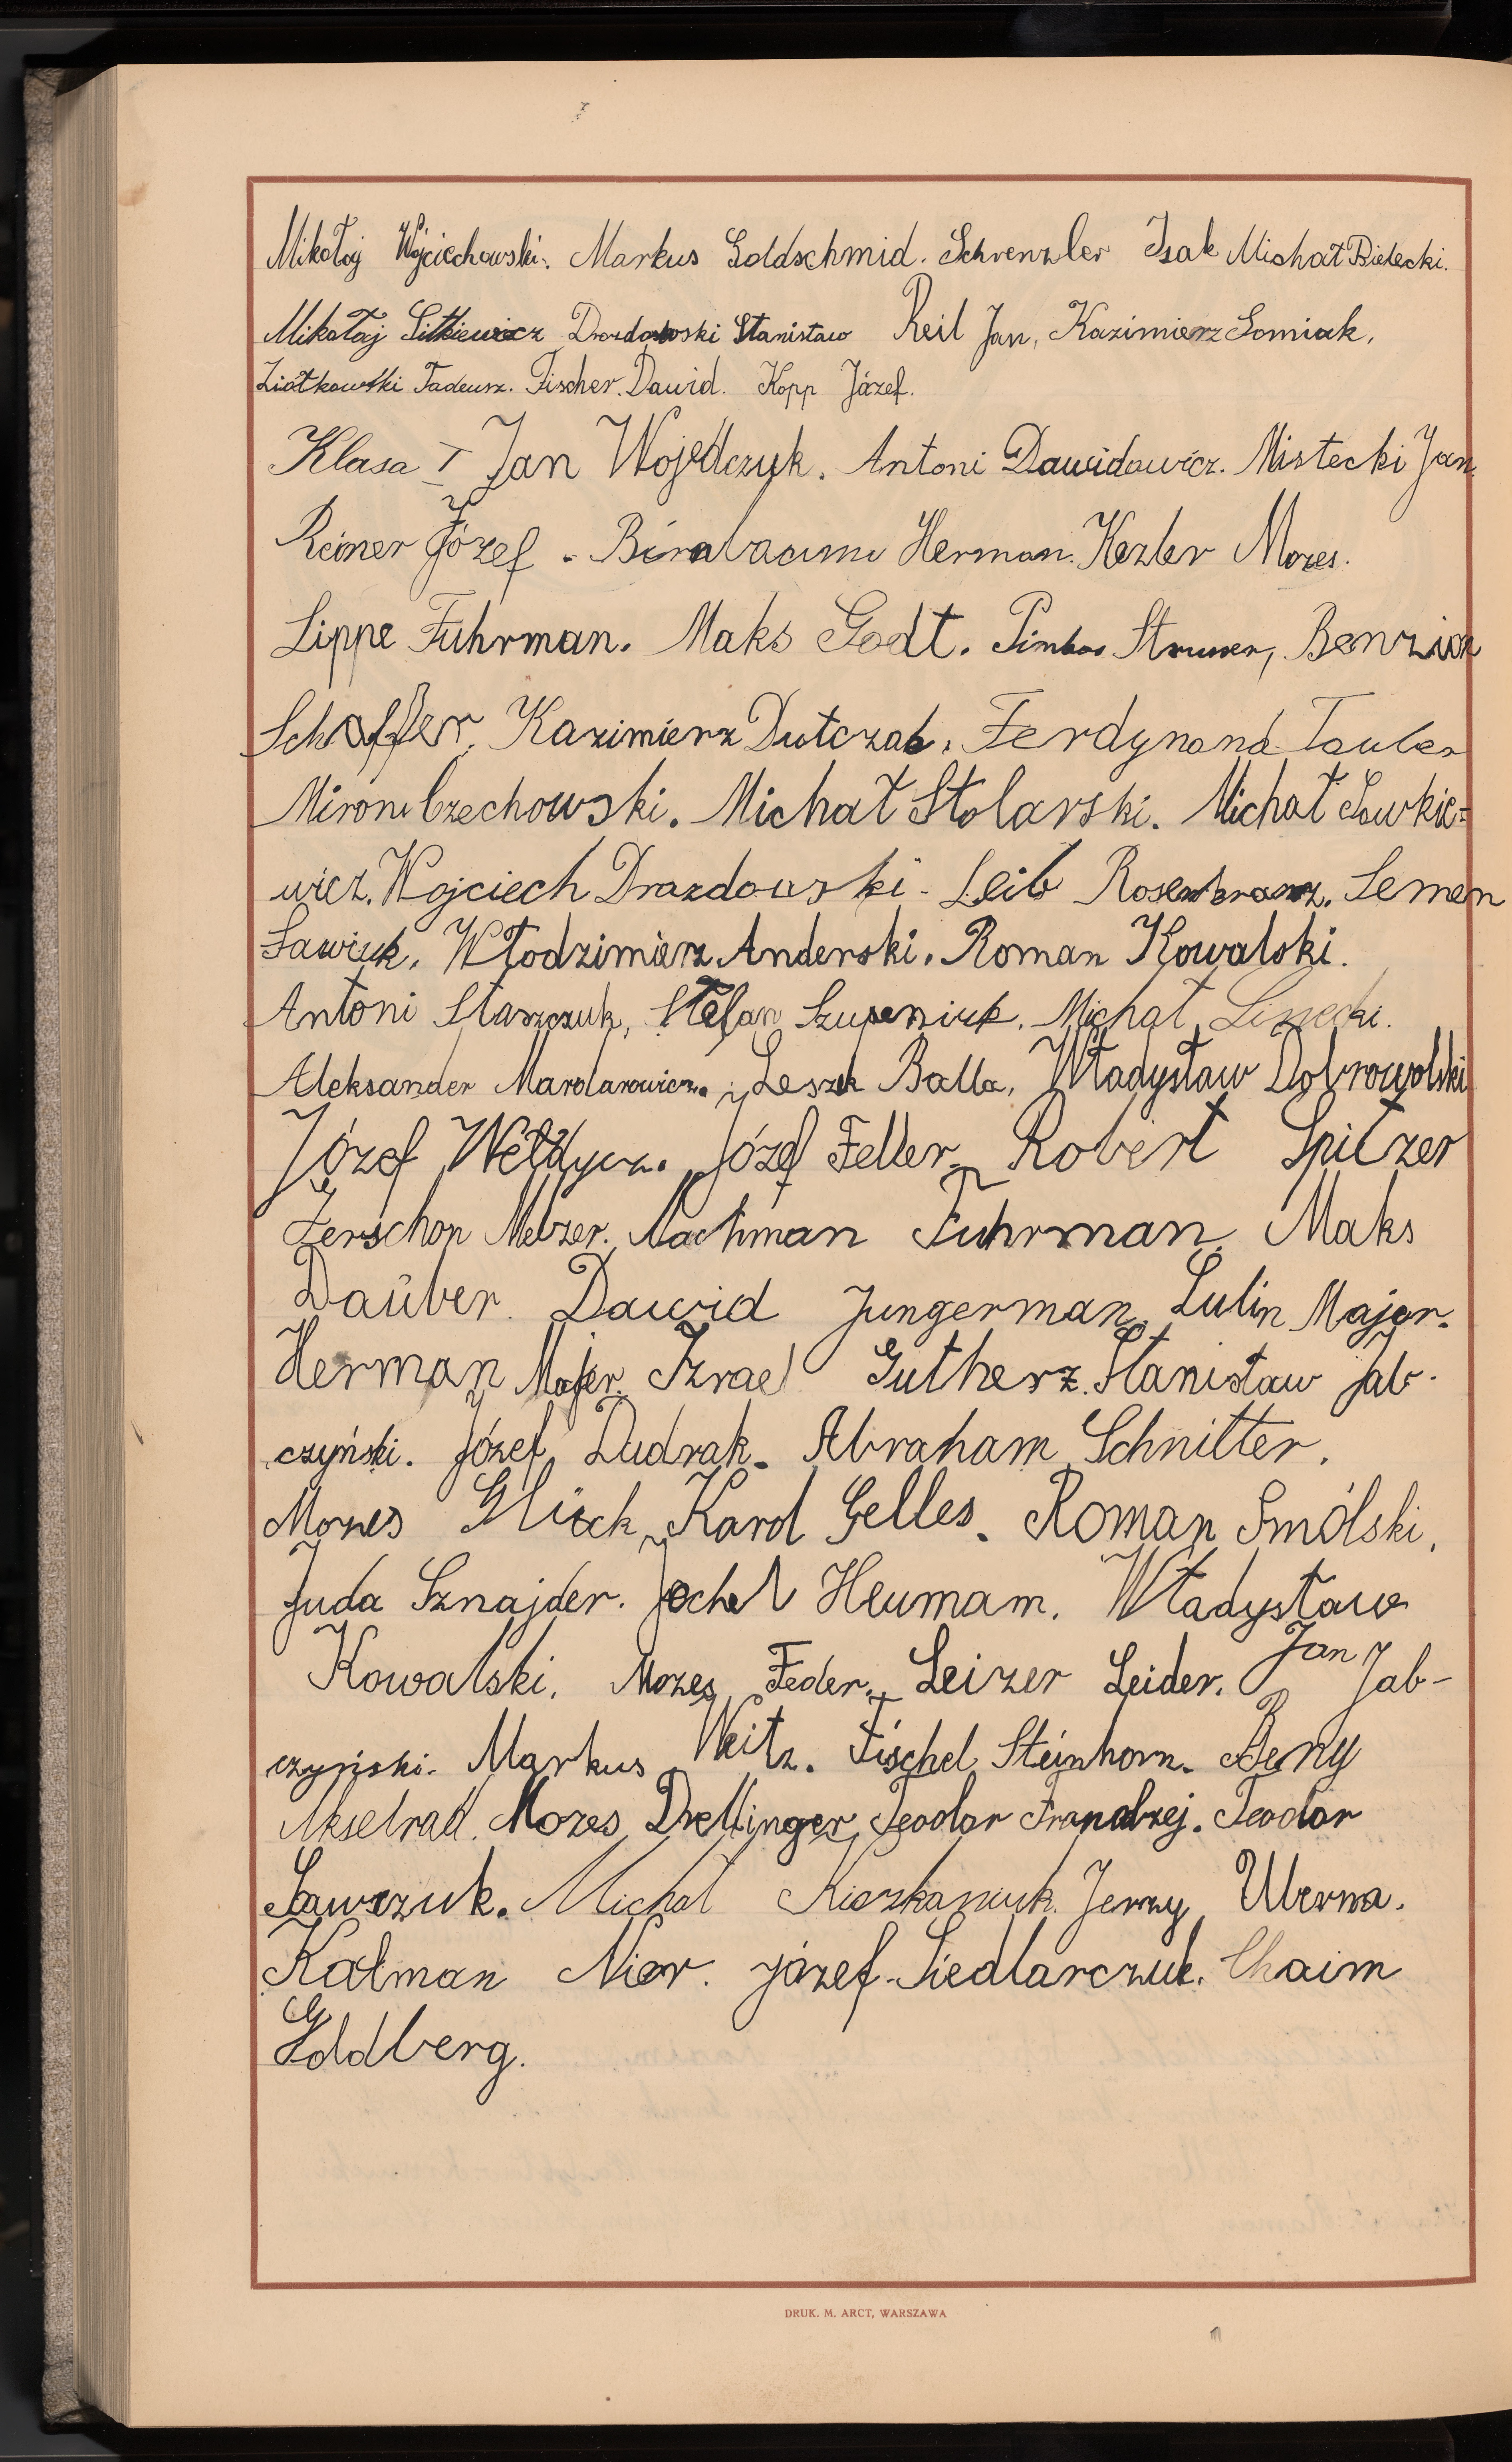 Mikołaj Wójciechowski. Markus Goldschmid. Schrenzler Isak Michał Bielecki.
Mikołaj Sitkiewicz Drozdowski Stanisław Reil Jan, Kazimierz Somiak,
Ziółkowski Tadeusz. Fischer Dawid. Kopp Józef.
Klasa I Jan Wojedczyk. Antoni Dawidowicz. Mistecki Jan
Reiner Józef. Herman. Kezler Mozes.
Lippe Fuhrman. Maks Godt. Pinkas Struwer, Benzion
Schaffer, Kazimierz Dutczak, Ferdynand Tauber
Miron Czechowski. Michał Stolarski. Michał Sawkie=
wicz. Wojciech Drozdowski. Leib Rosenkranz. Semen
Sawiuk. Włodzimierz Anderski. Roman Kowalski.
Antoni Staszczuk, Stefan Szupeniuk. Michał Linecki.
Aleksander Leszek Balla, Władysław Dobrowolski
Józef Wełdycz. Józef Feller, Robert Spitzer
Gerschon Melzer. Nachman Fuhrman, Maks
Daŭber. Dawid Jungerman, Lulin Major.
Herman Majer. Izrael Gutherz. Stanisław Jab-
czyński. Józef Dudrak. Abraham Schnitter.
Mozes Glück, Karol Gelles. Roman Smólski,
Juda Sznajder. Jochel Heumam. Władysław
Kowalski. Mozes Feder. Leizer Leider. Jan Jab-
czyński. Markus Weitz. Fischel Steinhorn. Beny
Akselrad. Mozes Drellinger, Teodor Frandzej. Teodor
Sawczuk. Michał Kiszkaniuk. Jerzy Uberna.
Kalman Nier. józef. Siedlarczuk. Chaim
Goldberg.
DRUK. M. ARCT, WARSZAWA